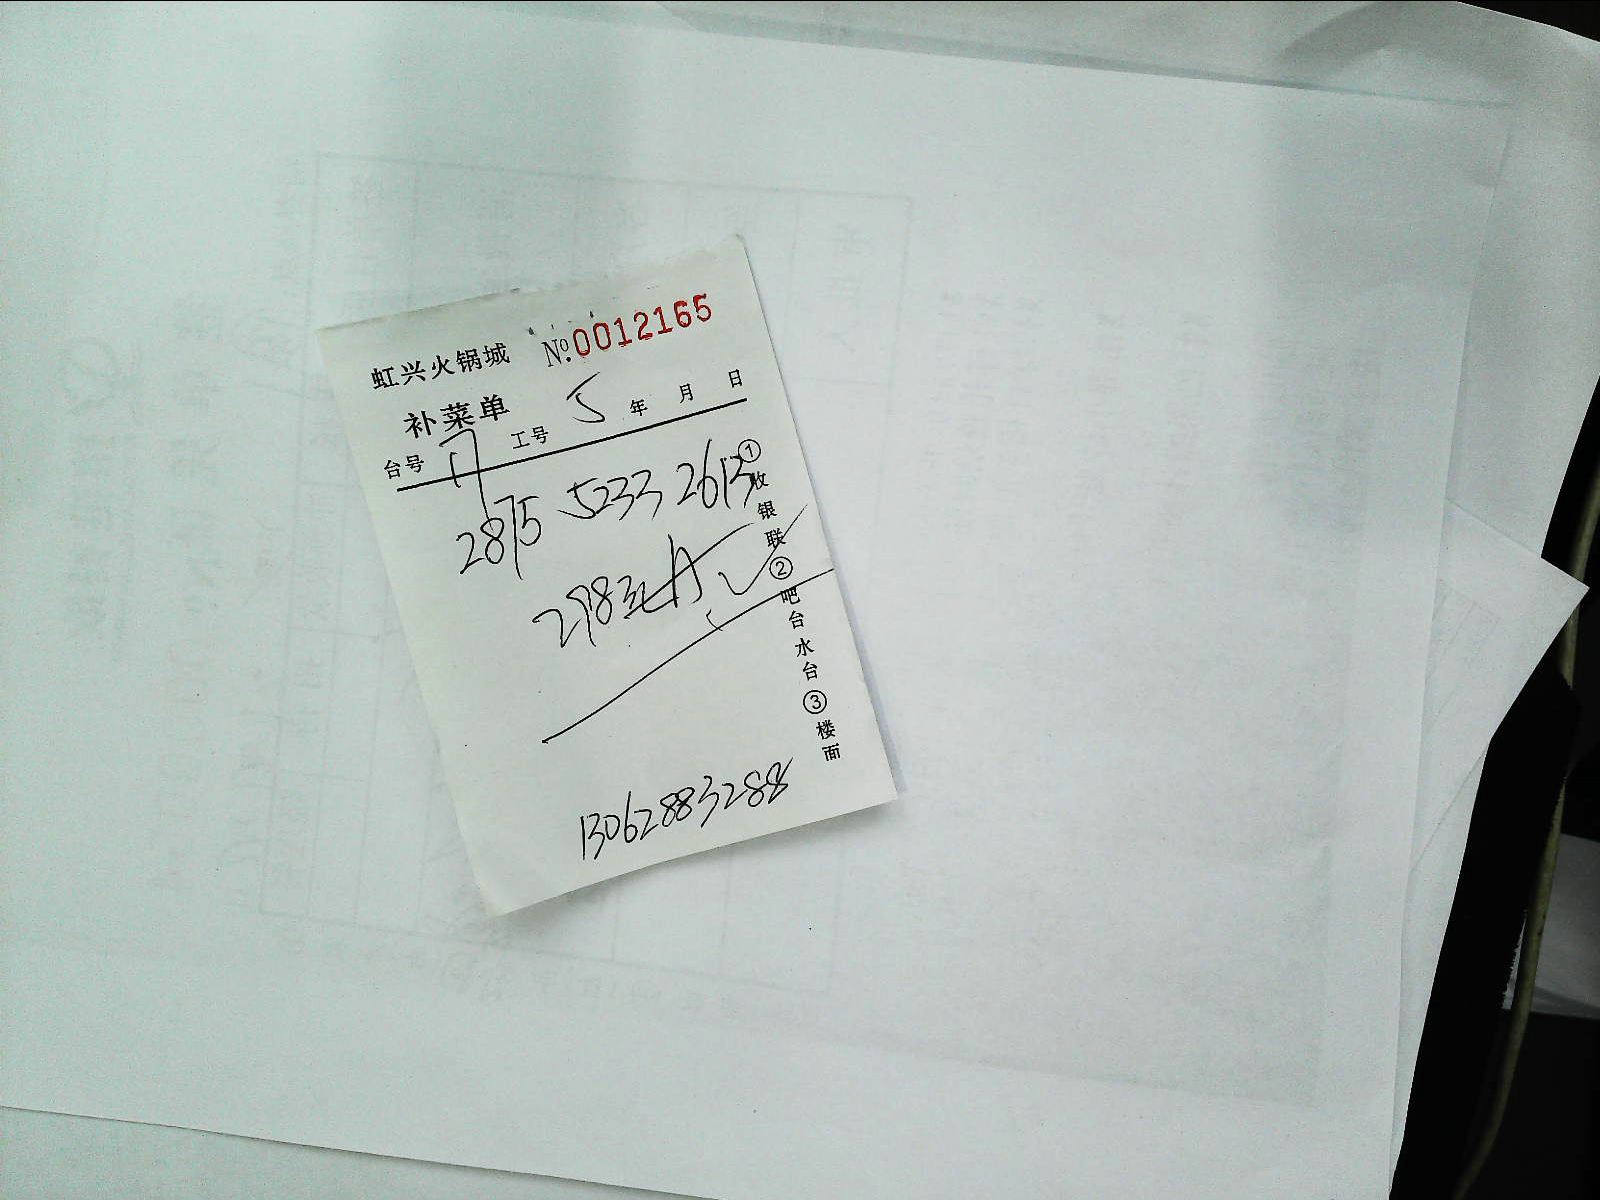 虹兴火锅城 №.0012165
补菜单
台号 17 工号 5 年 月 日
2875 5233 2613
298元A
13062883288
①收银联②吧台水台③楼面